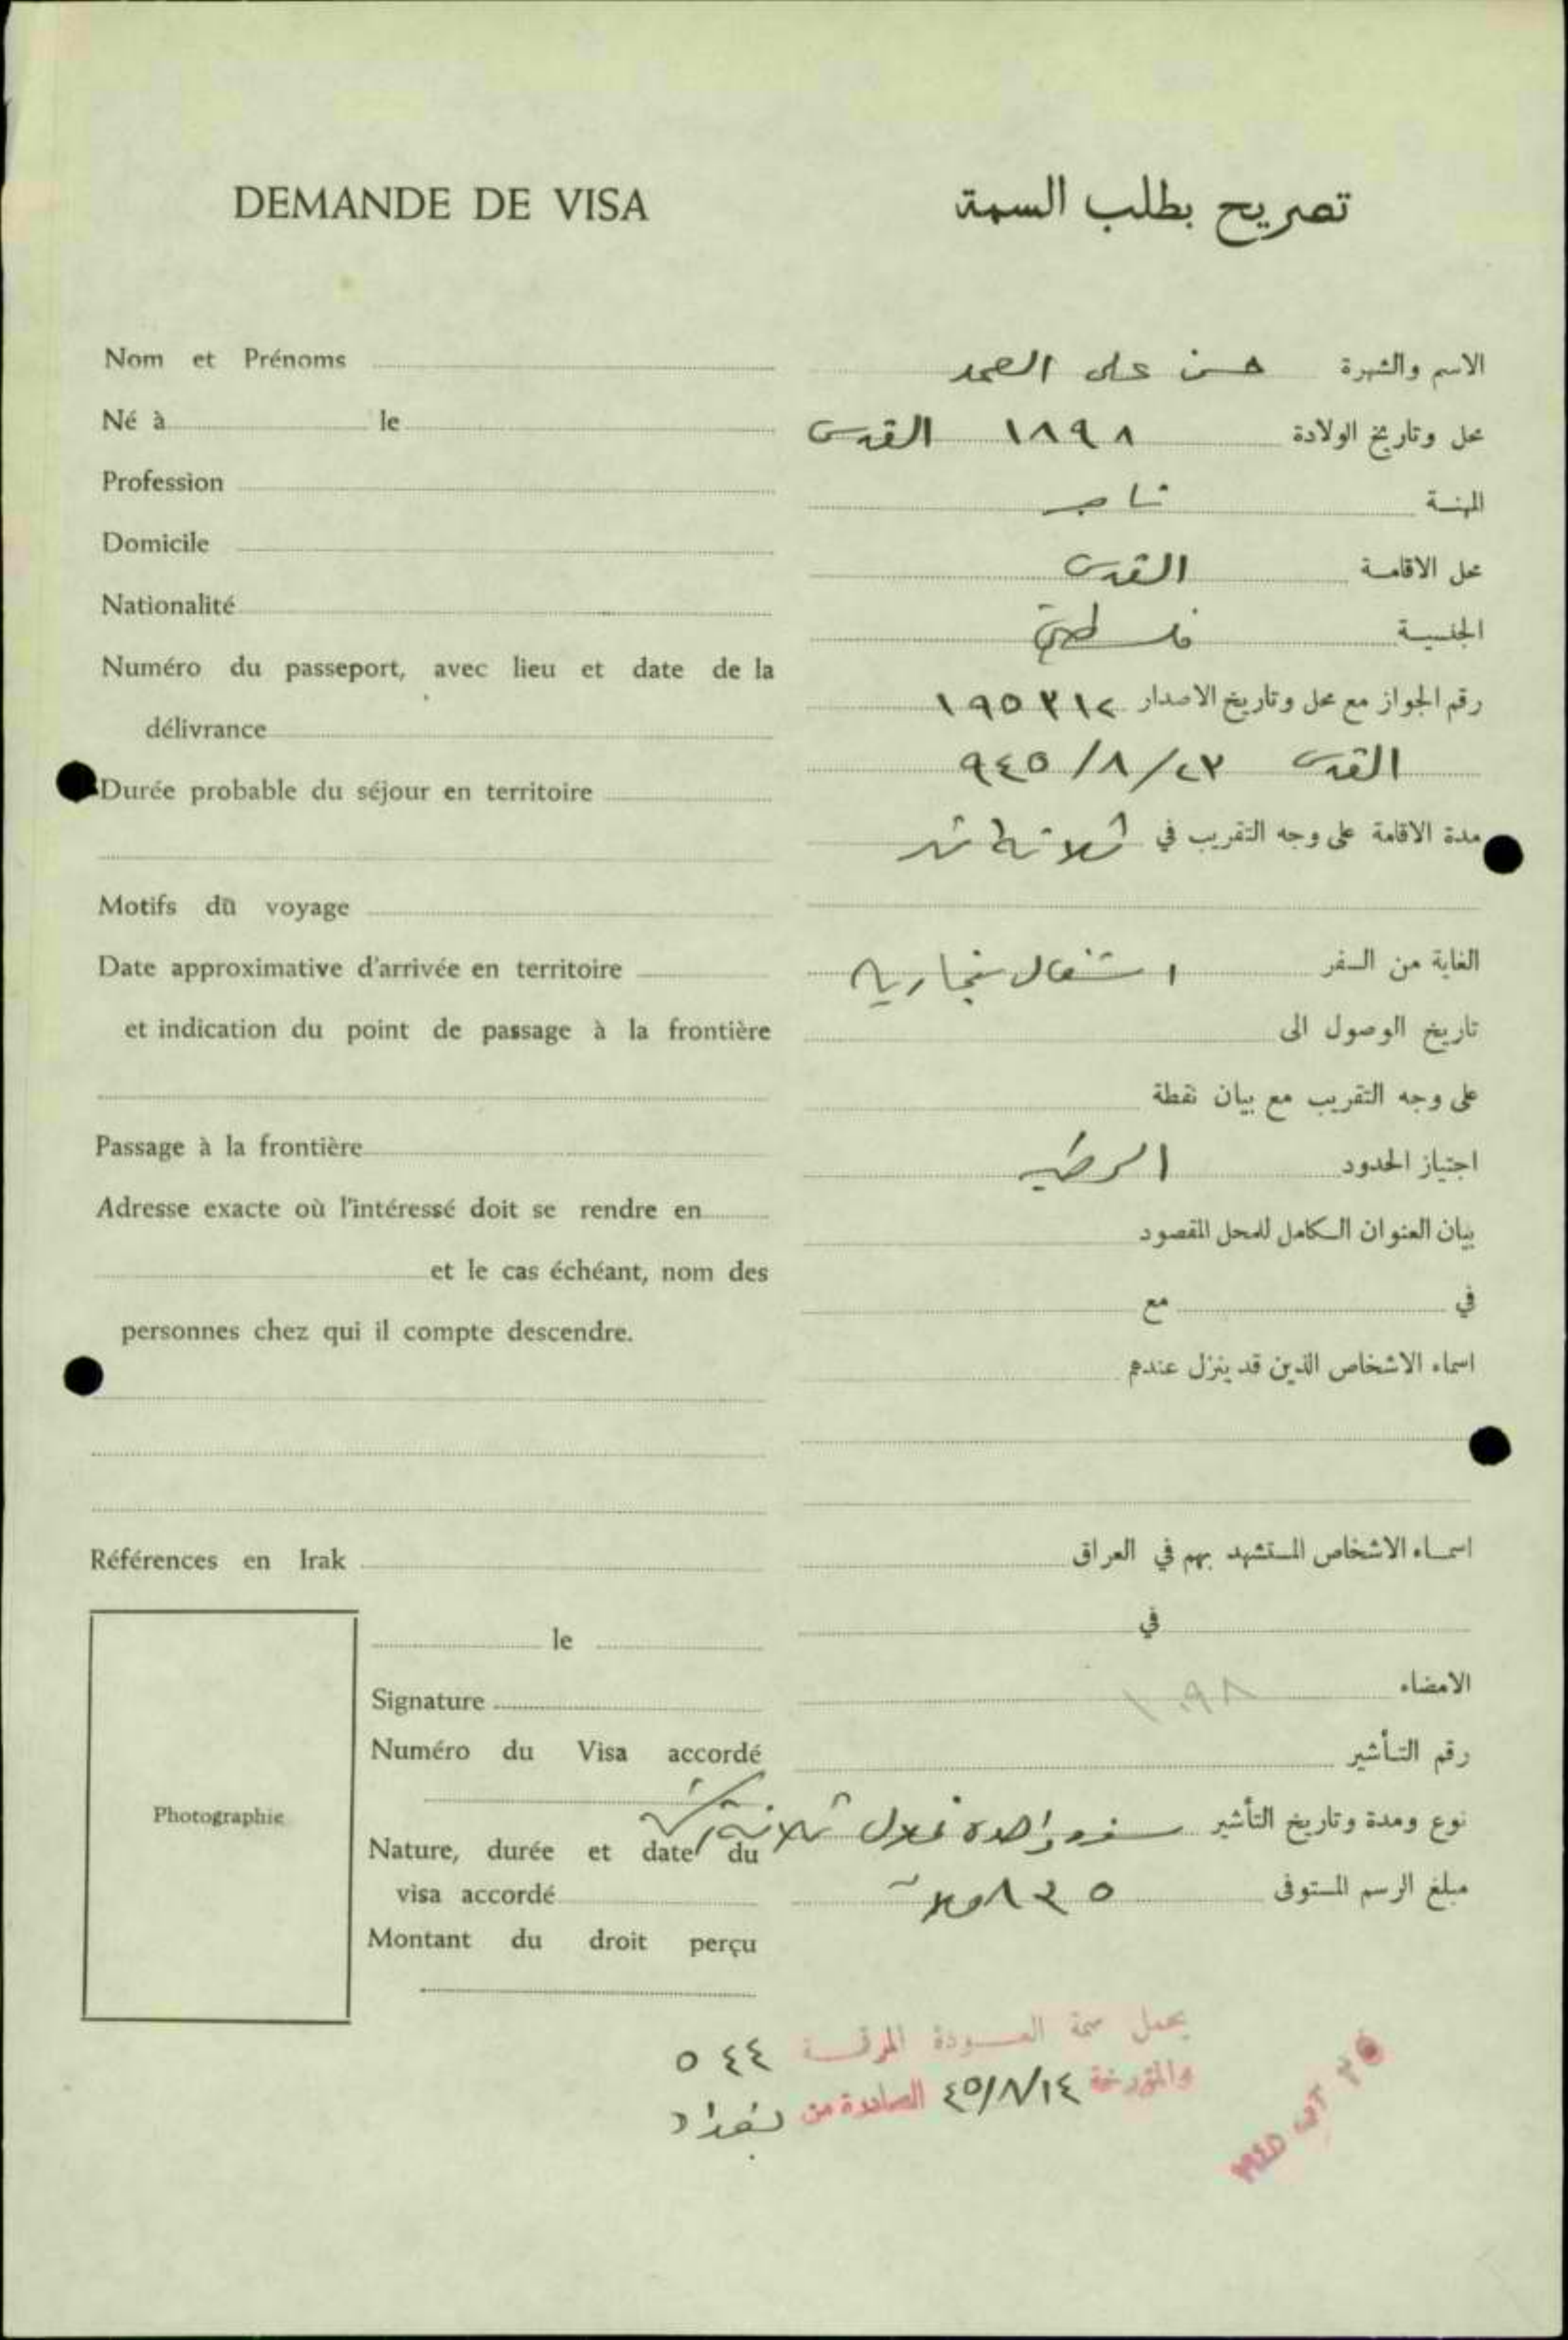 DEMANDE DE VISA
تصريح بطلب السمة
Nom et Prénoms
Né à le
Profession
Domicile
Nationalité
Numéro du passeport, avec lieu et date de la
délivrance
Durée probable du séjour en territoire
Motifs du voyage
Date approximative d'arrivée en territoire
et indication du point de passage à la frontière
Passage à la frontière
Adresse exacte où l'intéressé doit se rendre en
et le cas échéant, nom des
personnes chez qui il compte descendre.
Références en Irak
le
Signature
Numéro du Visa accordé
Photographie
Nature, durée et date du
visa accordé
Montant du droit perçu
الاسم والشهرة حسن علي الصمد
محل وتاريخ الولادة ١٨٩٨ القدس
المهنة تاجر
محل الاقامة القدس
الجنسية فلسطيني
رقم الجواز مع محل وتاريخ الاصدار ١٩٥٣١٢
القدس ٢٣/٨/٩٤٥
مدة الاقامة على وجه التقريب في ثلاثة اشهر
الغاية من السفر اشغال تجاريه
تاريخ الوصول الى
على وجه التقريب مع بيان نقطة
اجتياز الحدود الرطبه
بيان العنوان الكامل للمحل المقصود
في مع
اسماء الاشخاص الذين قد ينزل عندهم
اسماء الاشخاص المستشهد بهم في العراق
في
الامضاء
رقم التأشير
نوع ومدة وتاريخ التأشير سفره واحده خلال ثلاثة اشهر
مبلغ الرسم المستوفى
يحمل سمة العودة المرقمة ٥٤٤
والمؤرخة ٤٥/٨/١٤ الصادرة من بغداد
٢٥ آب ١٩٤٥